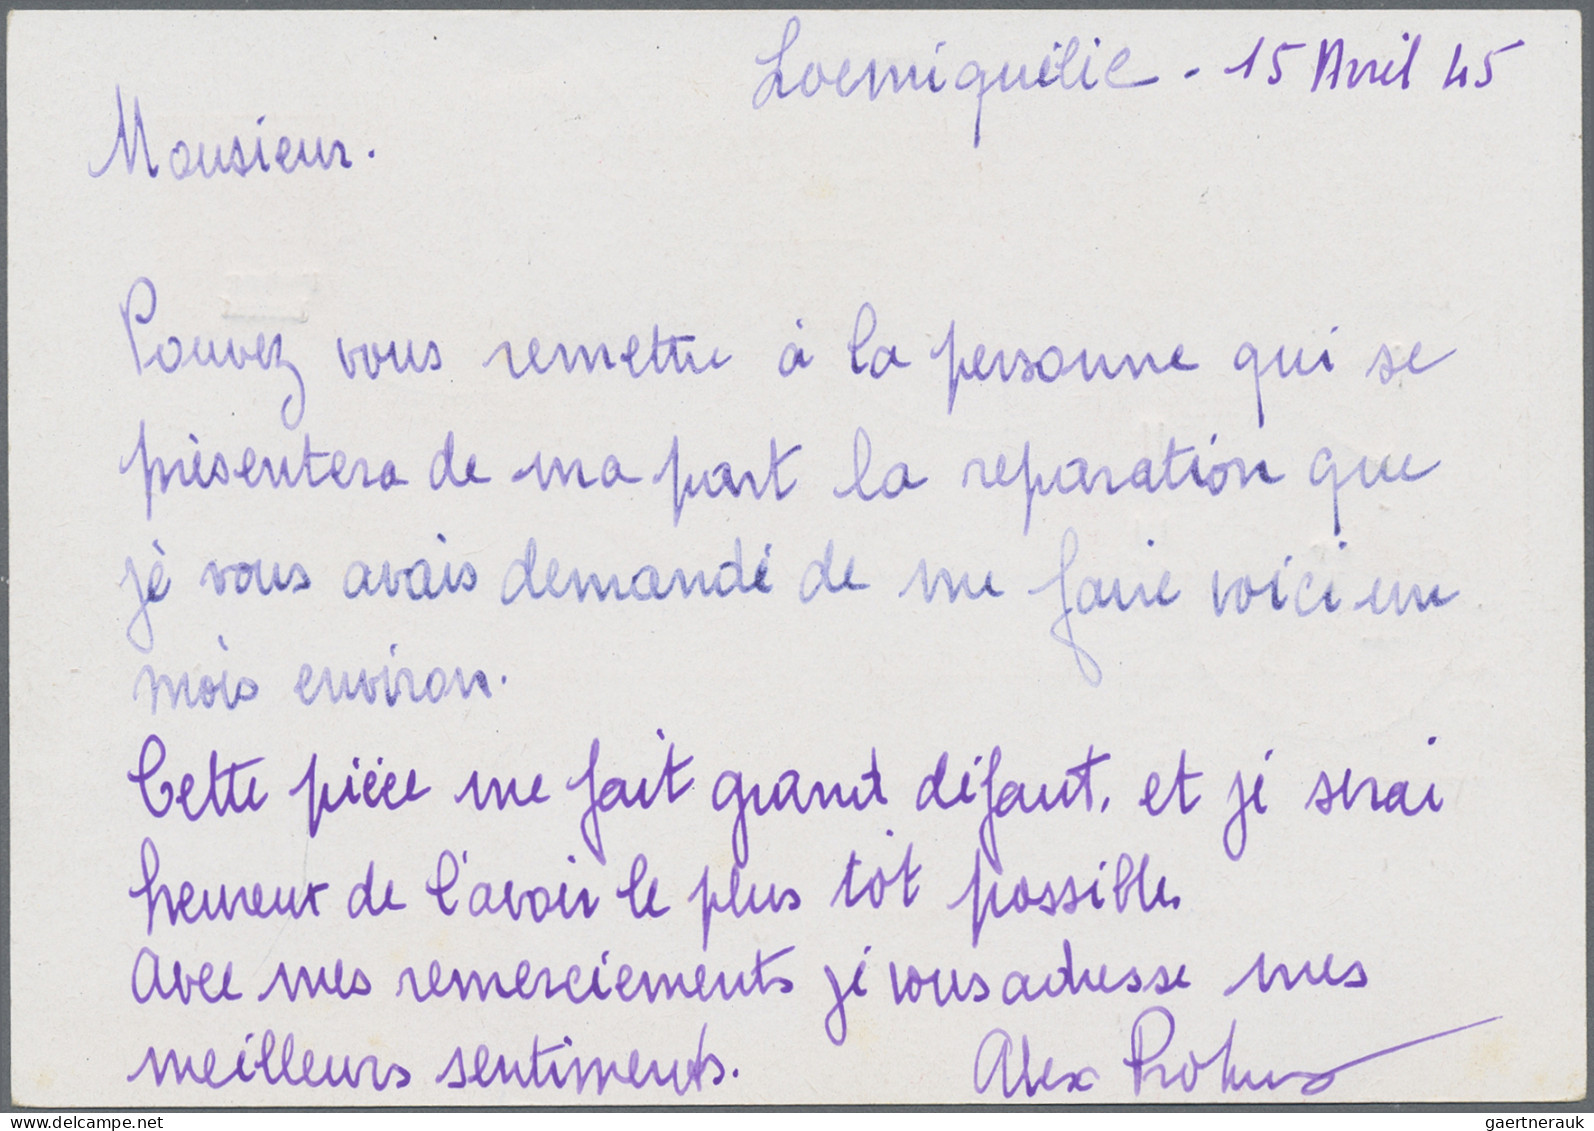 Locmiquélic - 15 Avril 45
Monsieur.
Pouvez vous remettre à la personne qui se
présentera de ma part la reparation que
je vous avais demandé de me faire voici un
mois environ.
Cette pièce me fait grand défaut, et je serai
heureux de l'avoir le plus tôt possible.
Avec mes remerciements je vous adresse mes
meilleurs sentiments.
Alex
gaertnerauk